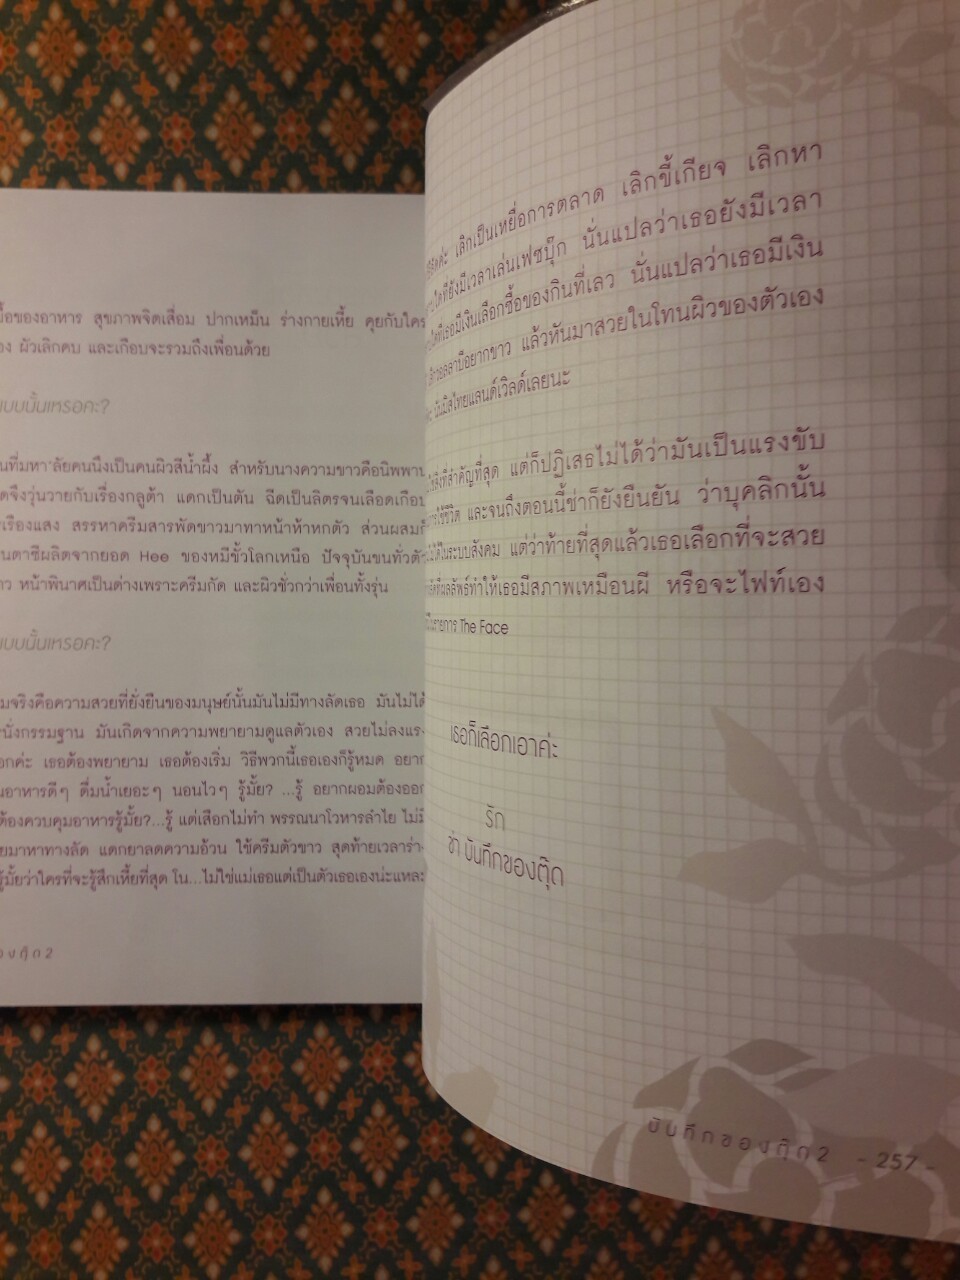 ื้อของอาหาร สุขภาพจิตเสื่อม ปากเหม็น ร่างกายเหี้ย คุยกับใคร
อง ผัวเลิกคบ และเกือบจะรวมถึงเพื่อนด้วย
แบบนั้นเหรอคะ?
นที่มหา'ลัยคนนึงเป็นคนผิวสีน้ำผึ้ง สำหรับนางความขาวคือนิพพาน
ดจึงวุ่นวายกับเรื่องกลูต้า แดกเป็นตัน ฉีดเป็นลิตรจนเลือดเกือบ
รืองแสง สรรหาครีมสารพัดขาวมาทาหน้าห้าหกตัว ส่วนผสมก็
นตาชีผลิตจากยอด Hee ของหมีขั้วโลกเหนือ ปัจจุบันขนทั่วตัว
าว หน้าพินาศเป็นด่างเพราะครีมกัด และผิวชั่วกว่าเพื่อนทั้งรุ่น
แบบนั้นเหรอคะ?
มจริงคือความสวยที่ยั่งยืนของมนุษย์นั้นมันไม่มีทางลัดเธอ มันไม่ได้
นั่งกรรมฐาน มันเกิดจากความพยายามดูแลตัวเอง สวยไม่ลงแรง
อกค่ะ เธอต้องพยายาม เธอต้องเริ่ม วิธีพวกนี้เธอเองก็รู้หมด อยาก
นอาหารดีๆ ดื่มน้ำเยอะๆ นอนไวๆ รู้มั้ย? ...รู้ อยากผอมต้องออก
ต้องควบคุมอาหารรู้มั้ย?...รู้ แต่เสือกไม่ทำ พรรณนาโวหารลำไย ไม่มี
ยมาหาทางลัด แดกยาลดความอ้วน ใช้ครีมตัวขาว สุดท้ายเวลาร่าง
รู้มั้ยว่าใครที่จะรู้สึกเหี้ยที่สุด โน...ไม่ใช่แม่เธอแต่เป็นตัวเธอเองน่ะแหละ
องตุ๊ด2
ค่ะ เลิกเป็นเหยื่อการตลาด เลิกขี้เกียจ เลิกหา
ใดที่ยังมีเวลาเล่นเฟซบุ๊ก นั่นแปลว่าเธอยังมีเวลา
ใดที่เธอมีเงินเลือกซื้อของกินที่เลว นั่นแปลว่าเธอมีเงิน
อยากขาว แล้วหันมาสวยในโทนผิวของตัวเอง
นั่นมิสไทยแลนด์เวิลด์เลยนะ
สิ่งที่สำคัญที่สุด แต่ก็ปฏิเสธไม่ได้ว่ามันเป็นแรงขับ
ใช้ชีวิต และจนถึงตอนนี้ช่าก็ยังยืนยัน ว่าบุคลิกนั้น
ได้ในระบบสังคม แต่ว่าท้ายที่สุดแล้วเธอเลือกที่จะสวย
ที่ผลลัพธ์ทำให้เธอมีสภาพเหมือนผี หรือจะไฟท์เอง
รายการ The Face
เธอก็เลือกเอาค่ะ
รัก
ช่า บันทึกของตุ๊ด
บันทึกของตุ๊ด2 - 257 -